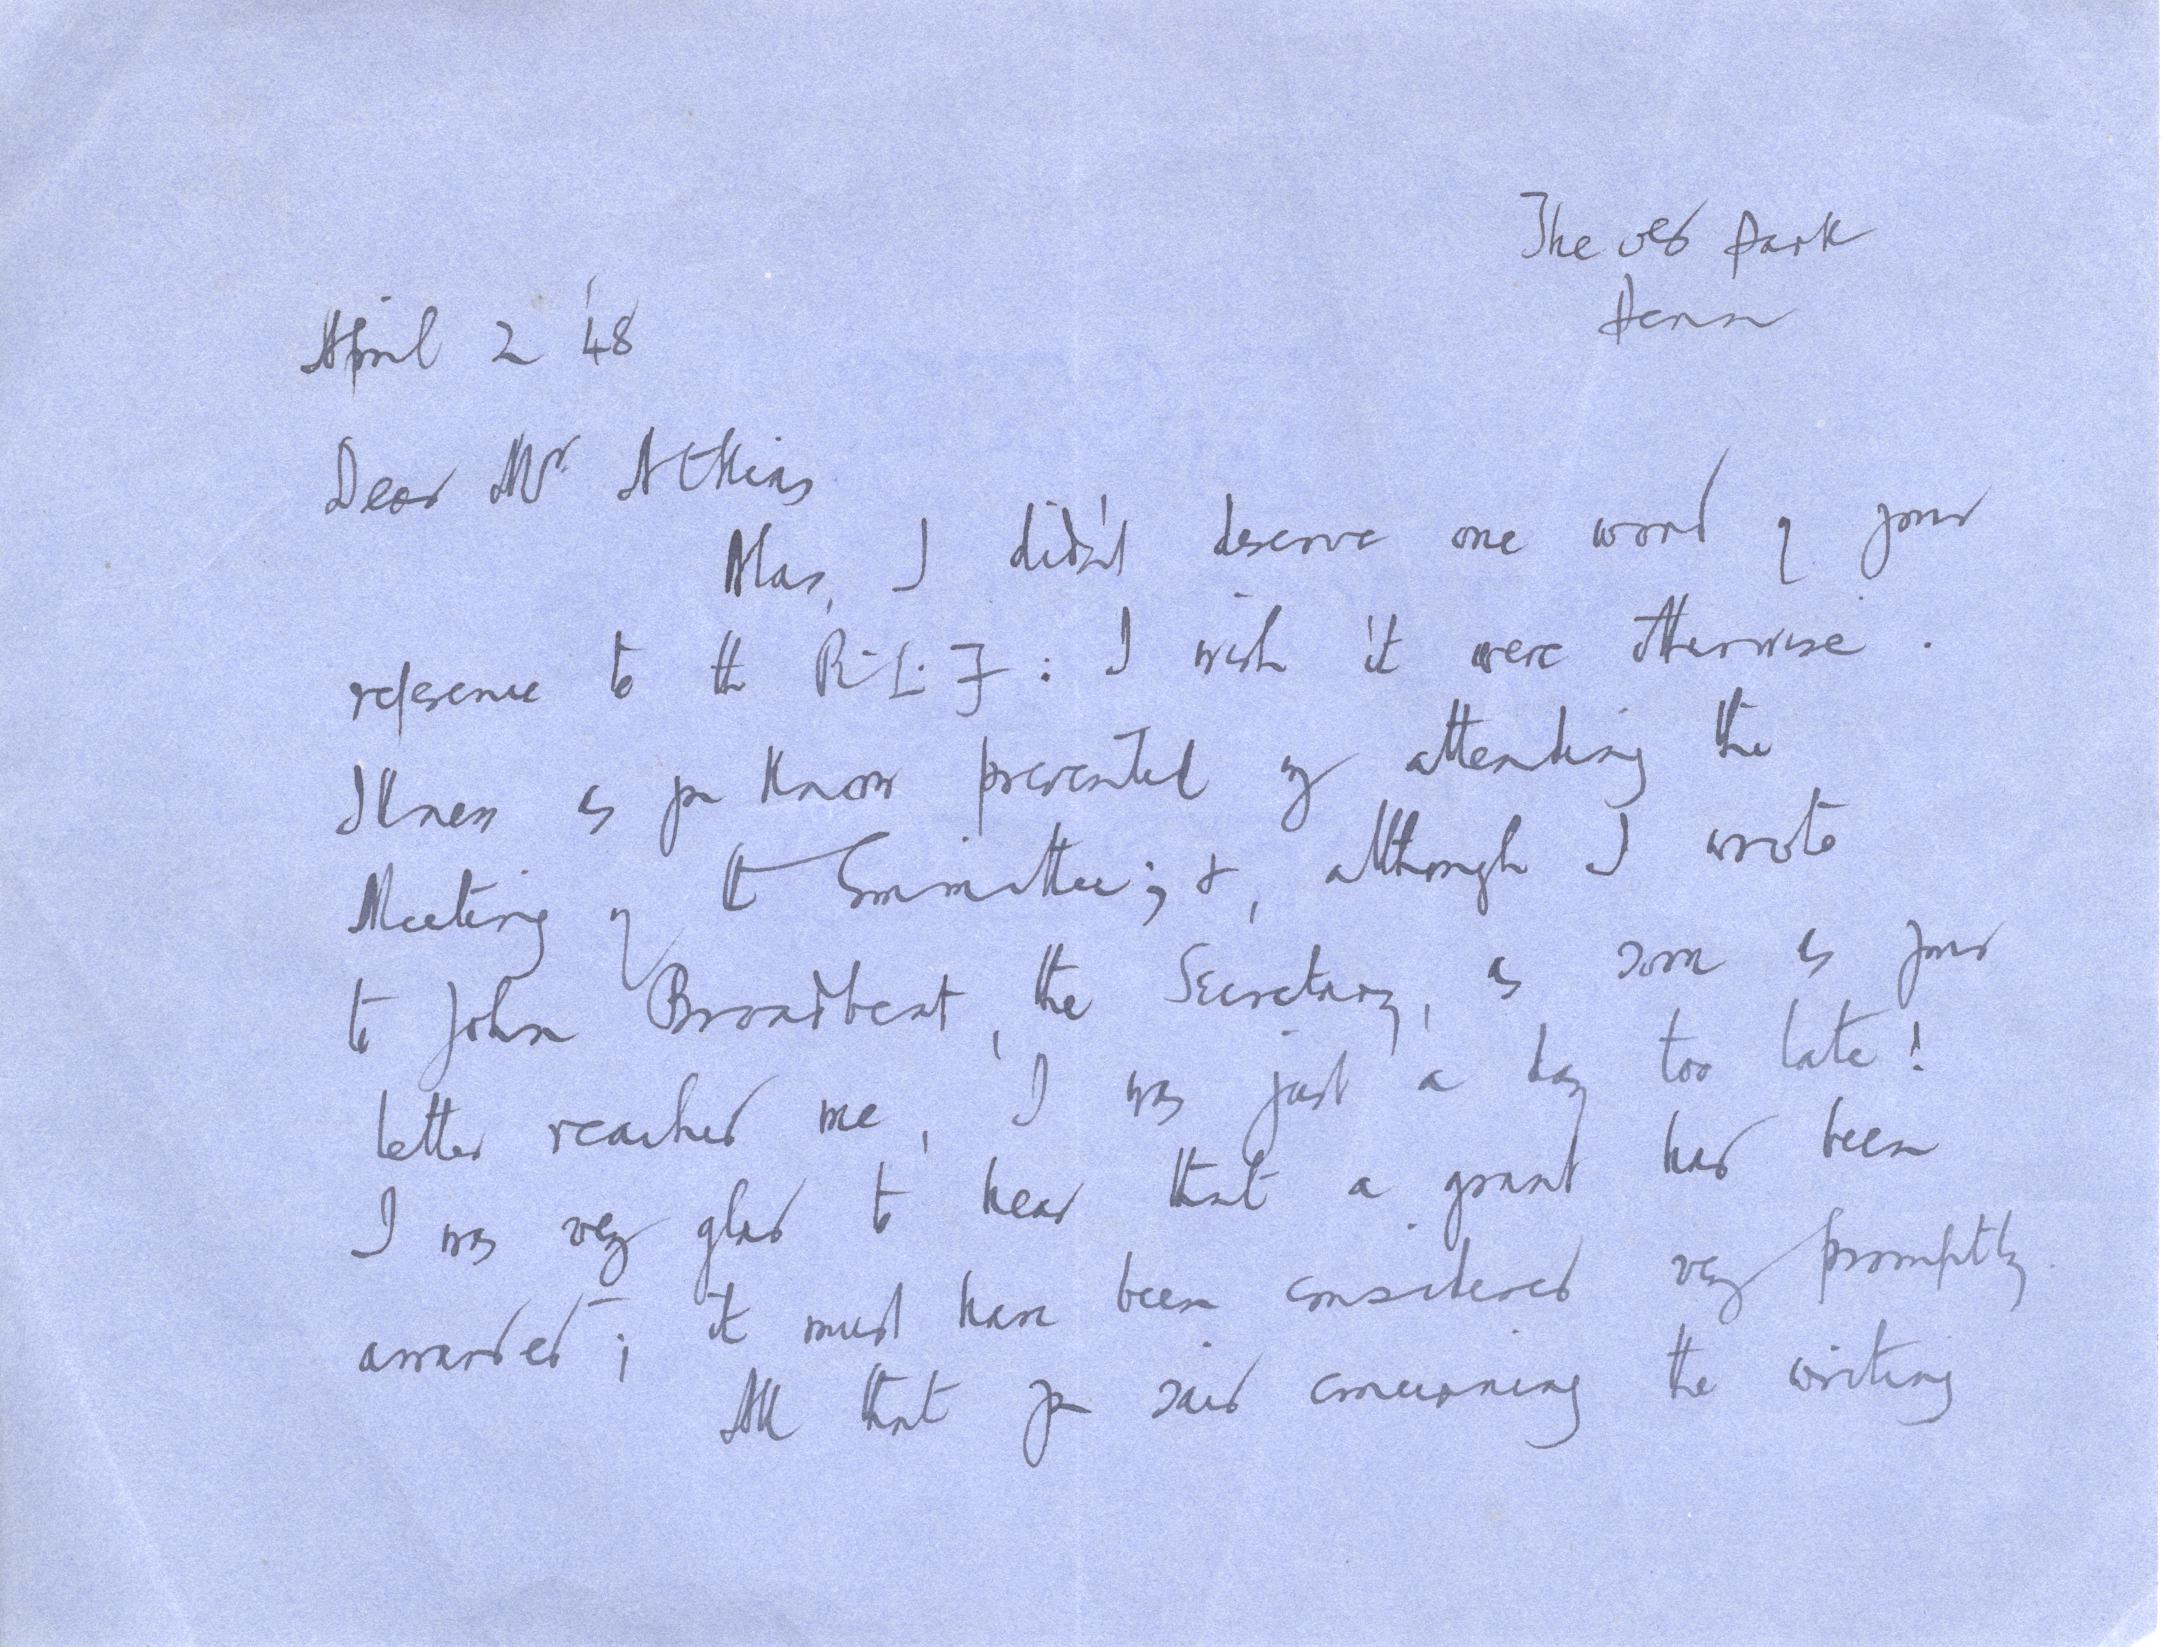 The old Park
Penn
April 2 '48
Dear Mr Atkins
Alas, I didn't deserve one word of your
reference to the R.L.F: I wish it were otherwise.
Illness as you know prevented my attending the
Meeting of the Committee; &, although I wrote
to John Broadbent, the Secretary, as soon as your
letter reached me, I was just a day too late!
I was very glad to hear that a grant had been
awarded; it must have been considered very promptly.
All that you said concerning the writing